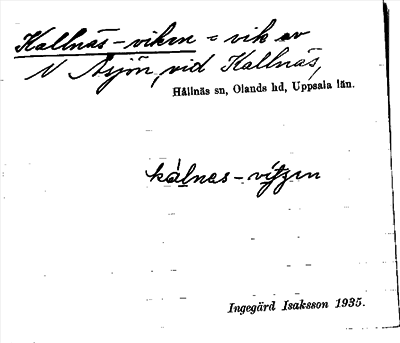 Kallnäs-viken = vik av
N Åsjön, vid Kallnäs,
Hållnäs sn, Olands hd, Uppsala län.
kálnas-vítzın
Ingegärd Isaksson 1935.